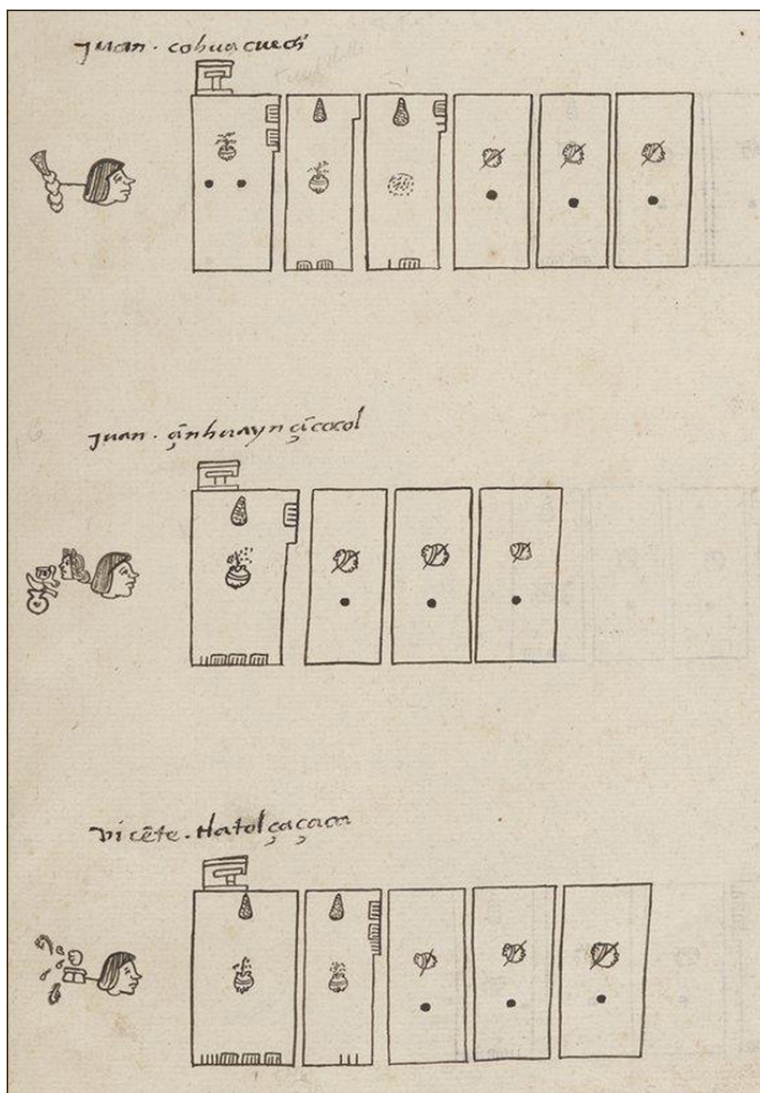 juan · cohuacuech
juan · çãnhuayn çãcocol
vicẽte · tlatolçaçaca